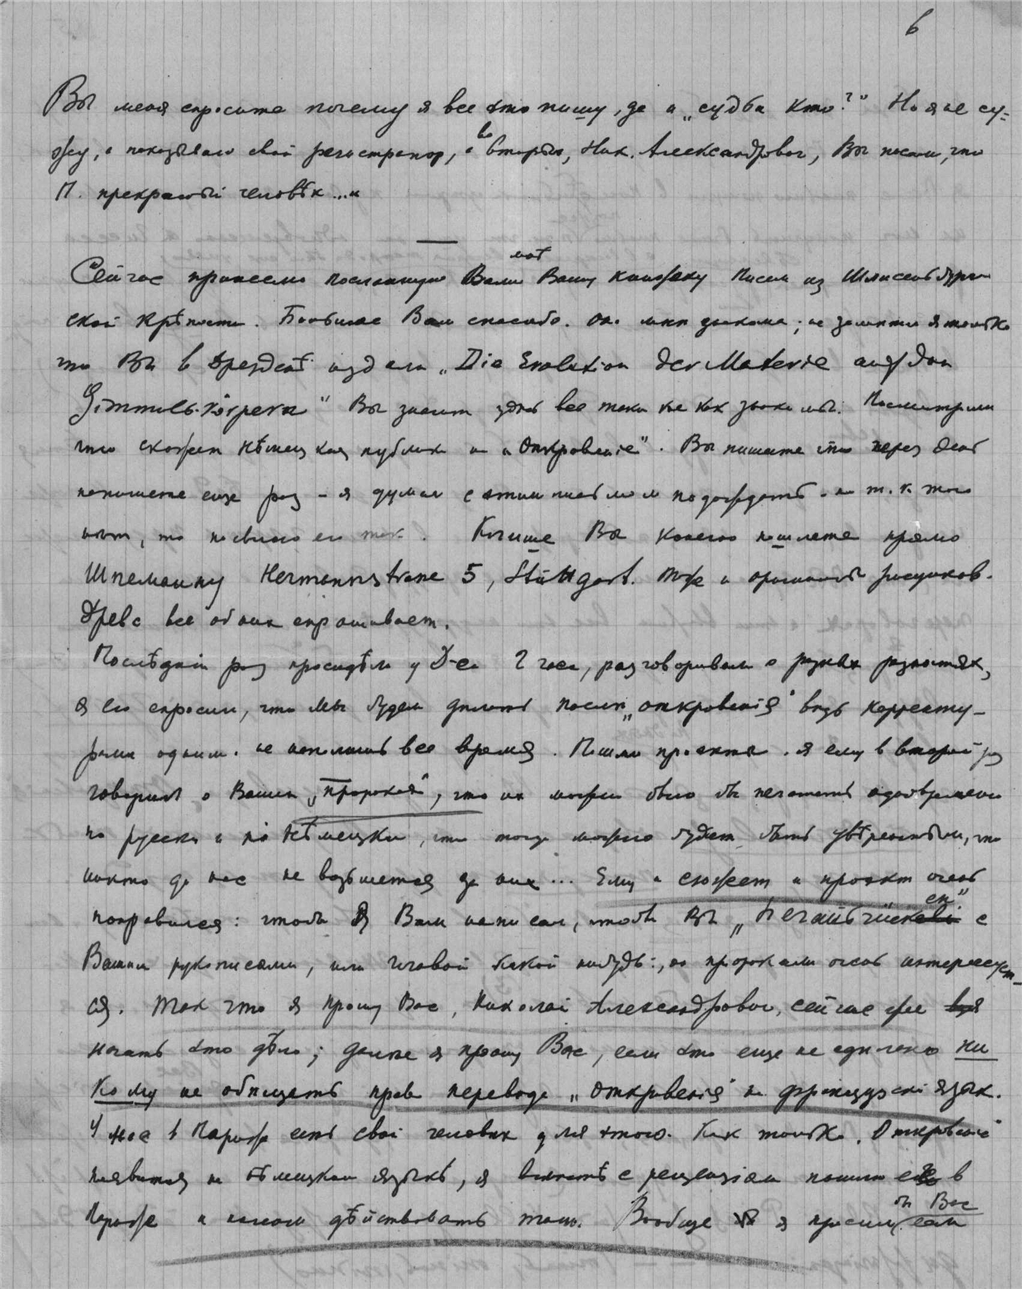 6
Вы меня спросите почему я все это пишу, да и „судьи кто?" Но я не су-
жу, а показываю свой регистратор, а во вторых, Ник. Александрович, Вы писали, что
П. прекрасный человѣк..."
Сейчас принесли посланную Вами мнѣ Вашу книжку Письма из Шлиссельбург
ской крѣпости. Большое Вам спасибо. она мнѣ знакома; не замѣтил я только
что Вы в Дрезденѣ издали „Die Evolution der Materie auf den
Himmels-Körpern" Вы значит здѣсь все таки кое как знакомы. Посмотрим
что скажет нѣмецкая публика на „Откровенiе". Вы пишете что через день
напишете еще раз - я думал с этим письмом подождать - но т. к. того
нѣт, то посылаю его так. Клише Вы конечно пошлете прямо
Шпеманну Hermannstrasse 5, Stuttgart. тоже и оригиналы рисунков.
Древс все об них спрашивает.
Послѣднiй раз просидѣли у Д-са 2 часа, разговаривали о разных разностях,
я его спросил, что мы будем дѣлать послѣ „откровенiя" вѣдь корректу-
рами одними не наполнишь все время. Пошли проекты. я ему в второй раз
говорил о Ваших „пророках", что их можно было бы печатать одновременно
по русски и по нѣмецки, что тогда можно будет быть увѣренным, что
никто до нас не возьмется за них... Ему и сюжет и проэкт очень
понравился: чтобы я Вам написал, чтобы Вы с
Вашими рукописями, или главой какой нибудь:, но пророками очень интересует-
ся. Так что я прошу Вас, Николай Александрович, сейчас же
начать это дѣло; далѣе я прошу Вас, если это еще не сдѣлано ни
кому не обѣщать права перевода „откровенiя" на французскiй язык.
У нас в Париже есть свой человѣк для этого. Как только Откровенiе
появится на нѣмецком языкѣ, я вмѣстѣ с рецензiями пошлю его в
Париж и начнем дѣйствовать там. Вообще я просил бы Вас